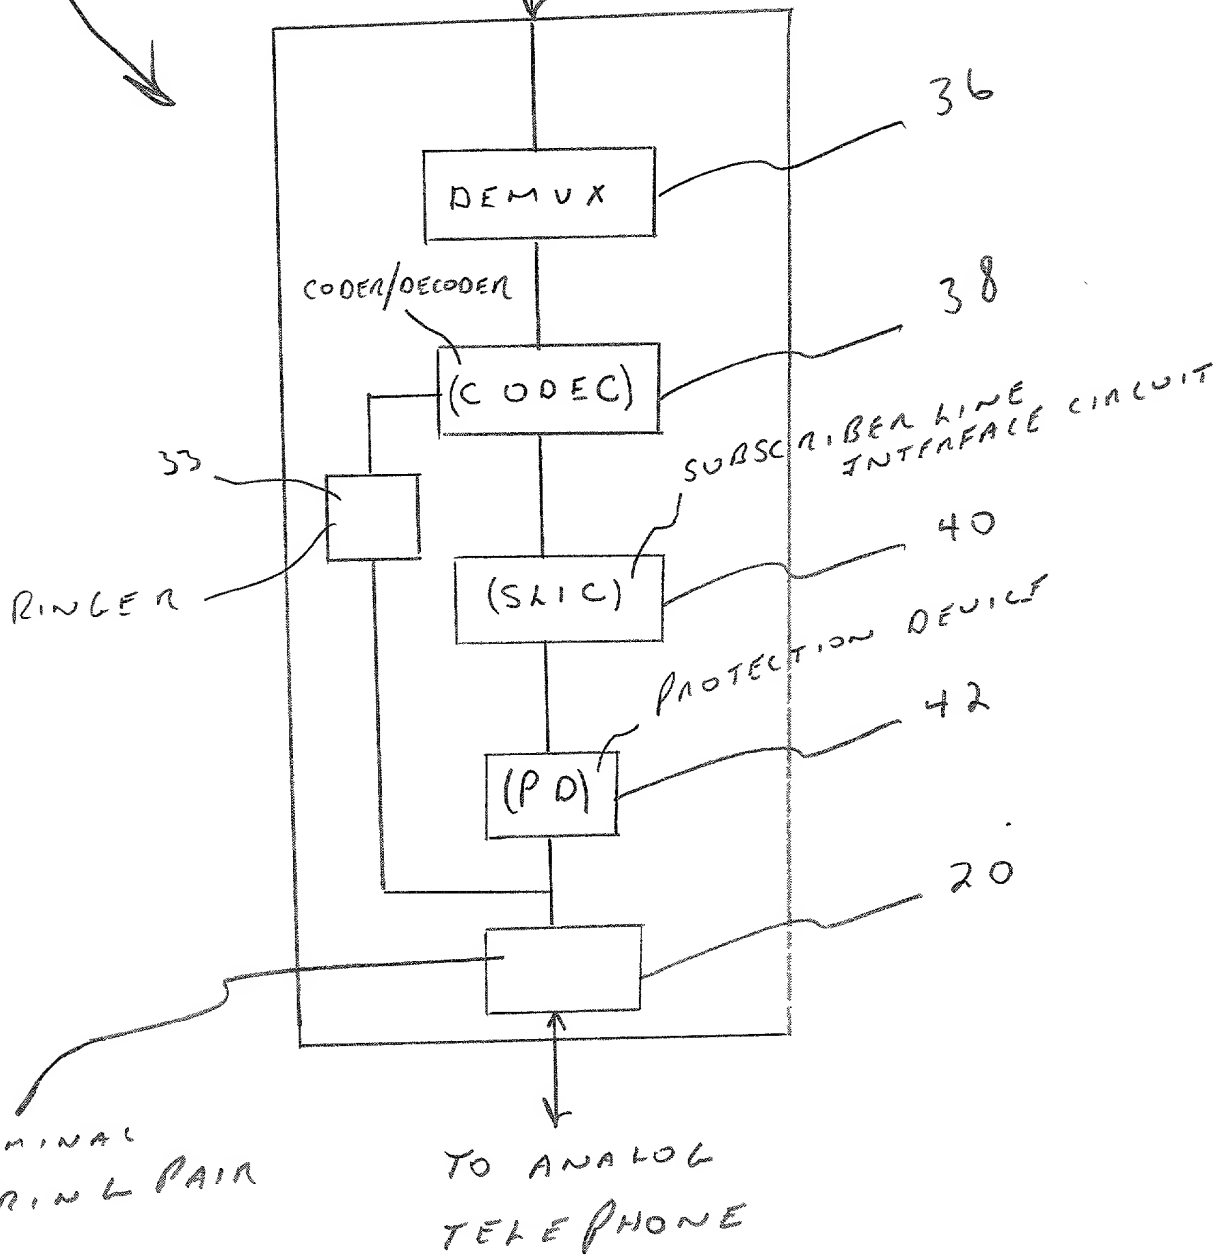 36
DEMUX
CODER/DECODER
38
(CODEC)
SUBSCRIBER LINE
INTERFACE CIRCUIT
33
40
(SLIC)
RINGER
PROTECTION DEVICE
42
(PD)
20
MINAL
RING PAIR
TO ANALOG
TELEPHONE